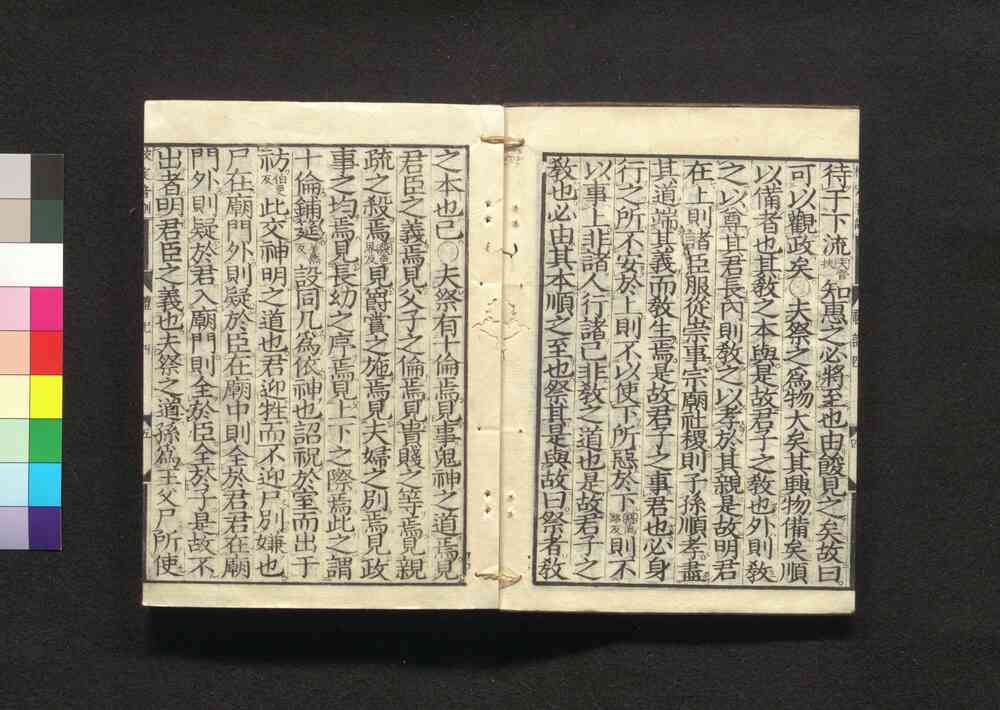 待于下流知惠之必將至也由餕見之矣故曰
可以觀政矣○夫祭之爲物大矣其興物備矣順
以備者也其敎之本與是故君子之敎也外則敎
之以尊其君長內則敎之以孝於其親是故明君
在上則諸臣服從崇事宗廟社稷則子孫順孝盡
其道端其義而敎生焉是故君子之事君也必身
行之所不安於上則不以使下所惡於下則不
以事上非諸人行諸己非敎之道也是故君子之
敎也必由其本順之至也祭其是與故曰祭者敎
之本也已○夫祭有十倫焉見事鬼神之道焉見
君臣之義焉見父子之倫焉見貴賤之等焉見親
疏之殺焉見爵賞之施焉見夫婦之別焉見政
事之均焉見長幼之序焉見上下之際焉此之謂
十倫鋪筵設同几爲依神也詔祝於室而出于
祊此交神明之道也君迎牲而不迎尸別嫌也
尸在廟門外則疑於臣在廟中則全於君君在廟
門外則疑於君入廟門則全於臣全於子是故不
出者明君臣之義也夫祭之道孫爲王父尸所使